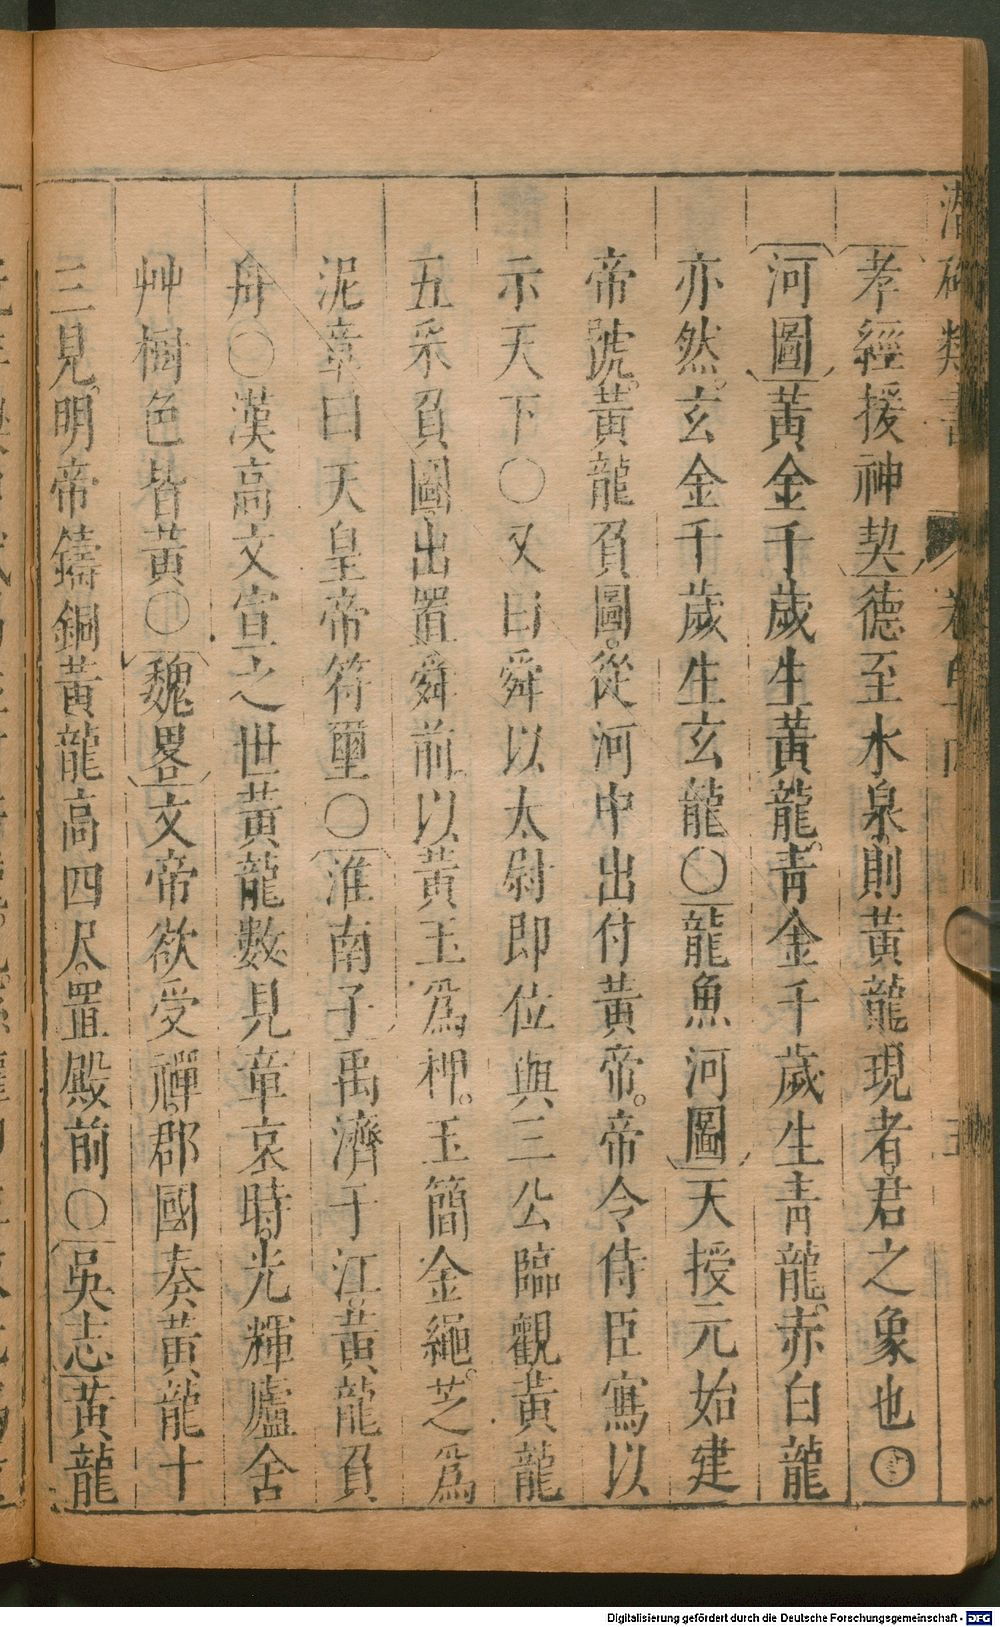 孝經援神契德至水泉則黃龍現者君之象也〇
河圖黃金千歲生黃龍青金千歲生青龍赤白龍
亦然玄金千歲生玄龍〇龍魚河圖天授元始建
帝號黃龍負圖從河中出付黃帝帝令侍臣寫以
示天下〇又曰舜以太尉即位與三公臨觀黃龍
五采負圖出置舜前以黃玉為柙玉簡金繩芝為
泥章曰天皇帝符璽〇淮南子禹濟于江黃龍負
舟〇漢高文宣之世黃龍數見章哀時光輝廬舍
艸樹色皆黃〇魏畧文帝欲受禪郡國奏黃龍十
三見明帝鑄銅黃龍高四尺置殿前〇吳志黃龍
Digitalisierung gefördert durch die Deutsche Forschungsgemeinschaft - DFG